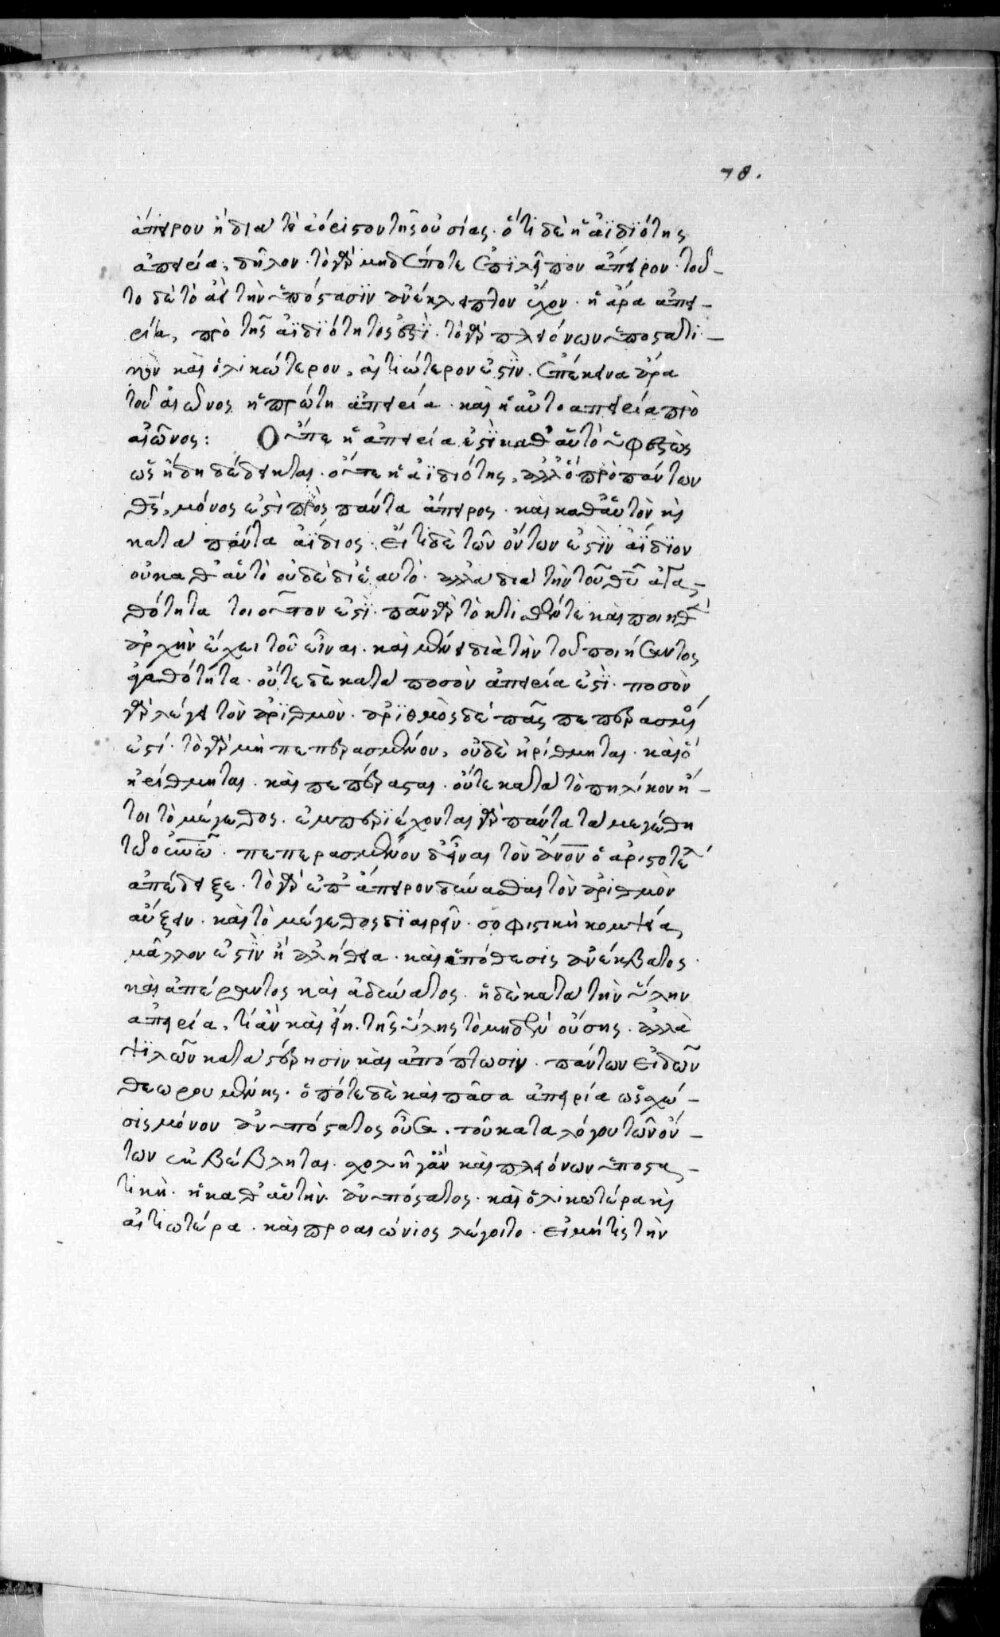 78.
ἀπείρου ἢ διὰ τὸ ἀόριστον τῆς οὐσίας. ὅτι δὲ ἡ ἀϊδιότης
ἀπειρία, δῆλον. τὸ γὰρ μηδέποτε ἐπιλεῖπον ἄπειρον. τοῦ-
το δὲ τὸ ἀεὶ τὴν ὑπόστασιν ἀνέκλειπτον ἔχον. ἡ ἄρα ἀπει-
ρία, πρὸ τῆς ἀϊδιότητος ἐστί. τὸ γὰρ πλειόνων ὑποστατι-
κὸν καὶ ὁλικώτερον, αἰτιώτερον ἐστίν. ἐπέκεινα ἄρα
τοῦ αἰῶνος ἡ πρώτη ἀπειρία. καὶ ἡ αὐτοαπειρία πρὸ
αἰῶνος: Οὔτε ἡ ἀπειρία ἐστὶ καθ' αὑτὸ ὑφεστὼς
ὡς ἤδη δέδεικται. οὔτε ἡ ἀϊδιότης, ἀλλ' ὁ πρὸ πάντων
θς, μόνος ἐστὶ πρὸς πάντα ἄπειρος. καὶ καθ' αὑτὸν καὶ
κατὰ πάντα ἀΐδιος. εἴ τι δὲ τῶν ὄντων ἐστὶν ἀΐδιον
οὐ καθ' αὑτὸ οὐδὲ δι' ἑαυτό. ἀλλὰ διὰ τὴν τοῦ θυ ἀγα-
θότητα τοιοῦτον ἐστί. πᾶν γὰρ τὸ κτισθέν τε καὶ ποιηθὲν
ἀρχὴν ἔχει τοῦ εἶναι. καὶ μένει διὰ τὴν τοῦ ποιήσαντος
ἀγαθότητα. οὔτε δὲ κατὰ ποσὸν ἀπειρία ἐστί. ποσὸν
γὰρ λέγει τὸν ἀριθμόν. ἀριθμὸς δὲ πᾶς πεπερασμένος
ἐστί. τὸ γὰρ μὴ πεπερασμένον, οὐδὲ ἠρίθμηται. καὶ ὃ
ἠρίθμηται. καὶ πεπέρασται. οὔτε κατὰ τὸ πηλίκον ἤ-
τοι τὸ μέγεθος. ἐμπεριέχονται γὰρ πάντα τὰ μεγέθη
τῶ οὐνῶ. πεπερασμένον δ' εἶναι τὸν οὐνον ὁ ἀριστοτέλης
ἀπέδειξε. τὸ γὰρ ἐπ' ἄπειρον δύνασθαι τὸν ἀριθμὸν
αὔξειν. καὶ τὸ μέγεθος διαιρεῖν. σοφιστικὴ κομψεία
μᾶλλον ἐστὶν ἢ ἀλήθεια. καὶ ὑπόθεσις ἀνέκβατος.
καὶ ἀπέραντος καὶ ἀδύνατος. ἡ δὲ κατὰ τὴν ὕλην
ἀπειρία, τί ἂν καὶ εἴη. τῆς ὕλης τὸ μηδὲν οὔσης. ἀλλὰ
ψιλῶν κατὰ στέρησιν καὶ ἀπόπτωσιν. πάντων εἰδῶν
θεωρουμένης. ὁπότε δὲ καὶ πᾶσα ἀπειρία ὡς σχέ-
σις μόνον ἀνυπόστατος οὖσα. τοῦ καταλόγου τῶν ὄν-
των ἐκβέβληται. σχολῆ γοῦν καὶ πλειόνων ὑποστα-
τική. ἡ καθ' αὑτὴν ἀνυπόστατος. καὶ ὁλικωτέρα καὶ
αἰτιωτέρα. καὶ προαιώνιος λέγοιτο. εἰ μή τις τὴν